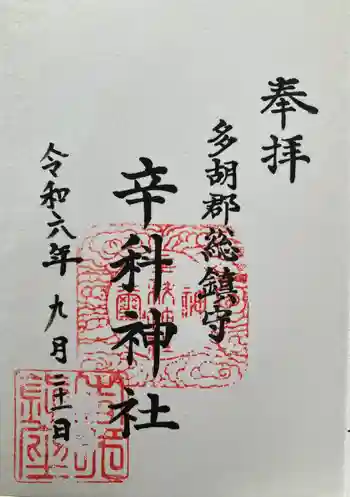 奉拝
多胡郡総鎮守
辛科神社
令和六年 九月二十一日